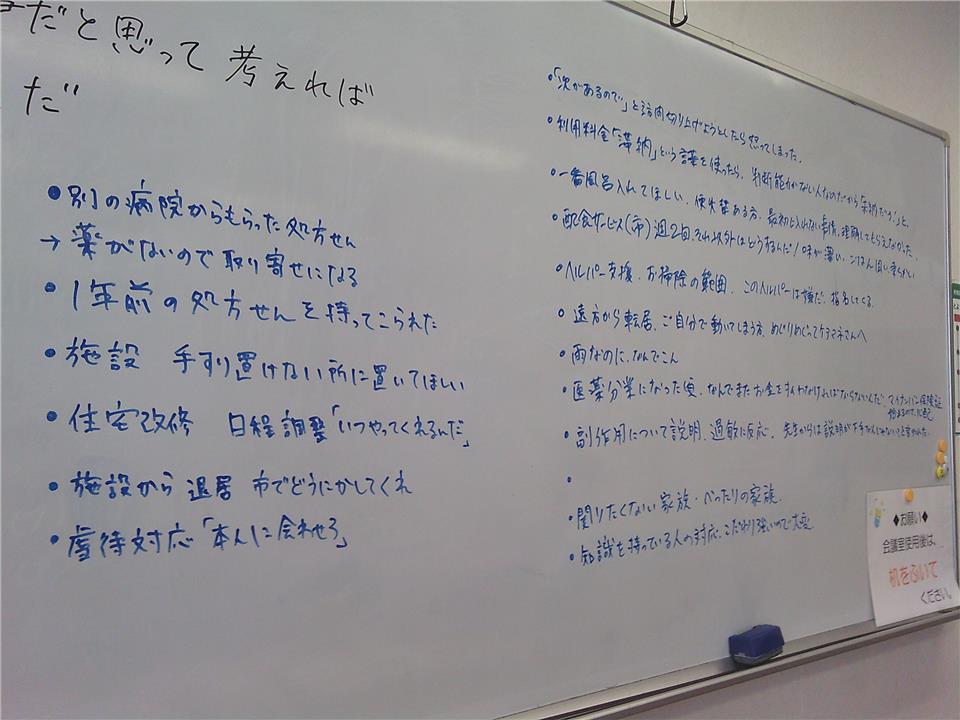 だと思って考えれば
だ
・別の病院からもらった処方せん
→薬がないので取り寄せになる
・1年前の処方せんを持ってこられた
・施設 手すり置けない所に置いてほしい
・住宅改修 日程調整「いつやってくれるんだ」
・施設から退居 市でどうにかしてくれ
・虐待対応「本人に会わせろ」
・「次があるので」と訪問切り上げようとしたら怒ってしまった。
・利用料金「滞納」という言葉を使ったら、判断能力がない人なのだから「未納だろ!」と、
・一番風呂入れてほしい、便失禁ある方、最初に入れない事情、理解してもらえなかった、
・配食サービス(市)週2回、それ以外はどうするんだ!味が薄い、ごはん固い、柔らかい
・ヘルパー支援、お掃除の範囲、このヘルパーは嫌だ、指名してくる、
・遠方から転居、ご自分で動いてしまう方、めぐりめぐってケアマネさんへ
・雨なのに、なんでこん
・医薬分業になった頃、なんでまたお金を払わなければならないんだ、マイナンバー保険証
始まるので、心配
・副作用について説明、過敏に反応、先生からは説明が
・
・関りたくない家族・べったりの家族、
・知識を持っている人の対応、こだわり強いので大変
◆お願い◆
会議室使用後は、
机をふいて
ください。